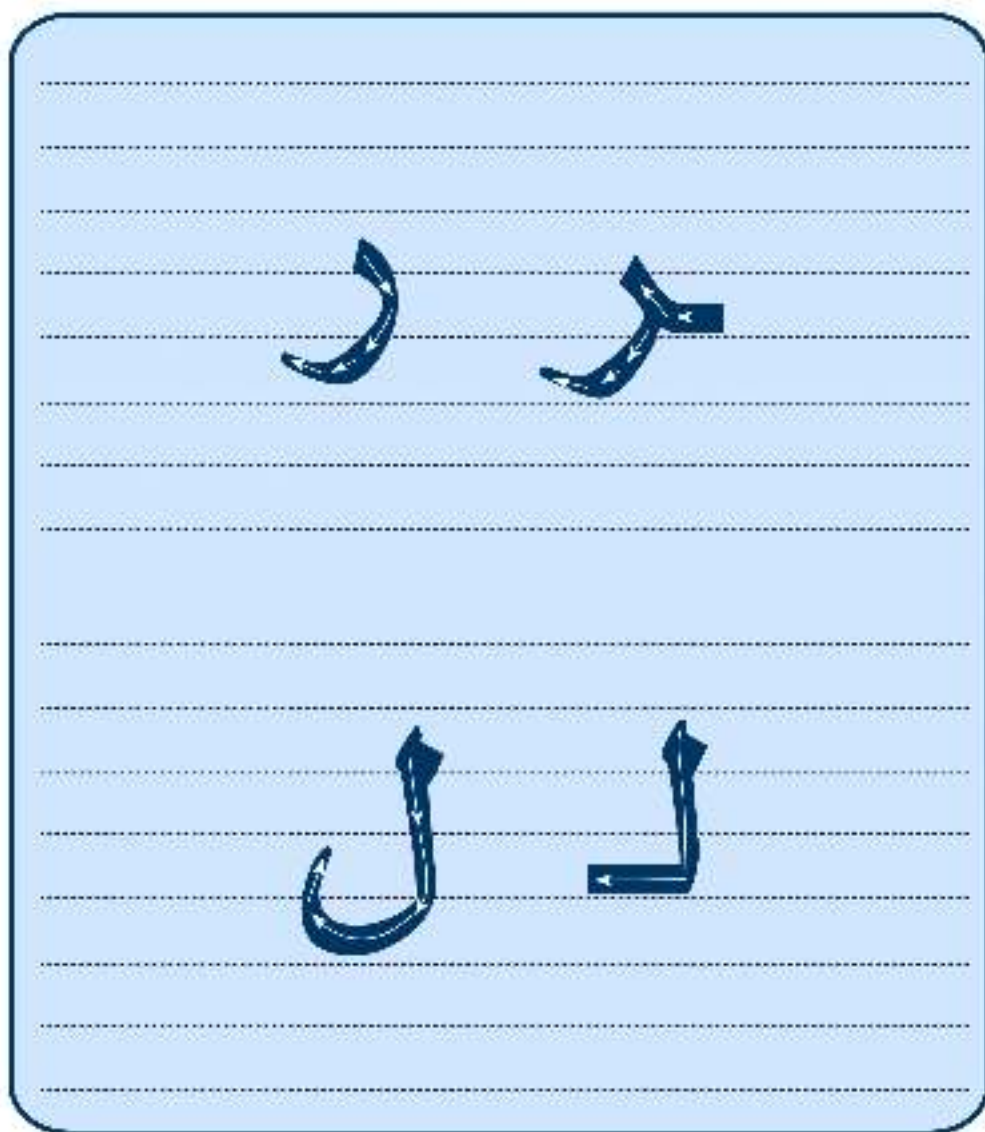 ـر ر
لـ ل